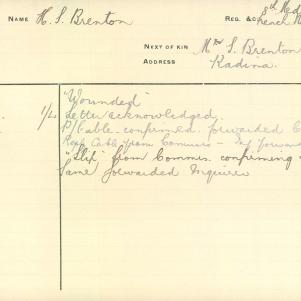 NAME H. S. Brenton REG. &
NEXT OF KIN Mrs S. Brenton
ADDRESS Kadina.
"Wounded"
1/2 Letter acknowledged
P/Cable confirmed forwarded
Cable from Commis -
"Slip" from Commis. confirming
Same forwarded Inquirer